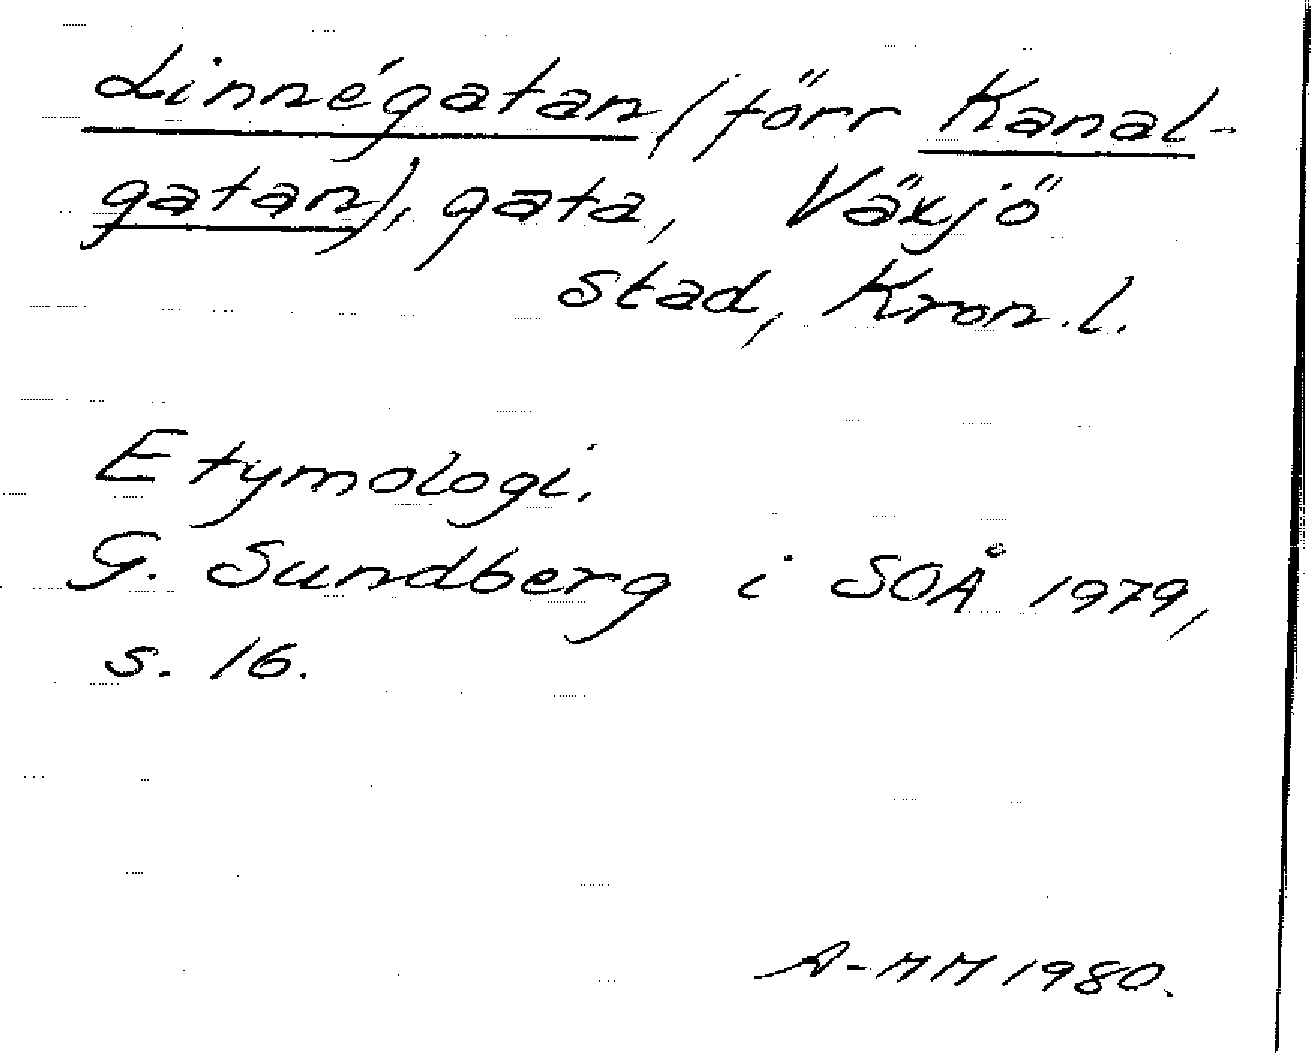 Linnégatan (förr Kanal-
gatan), gata, Växjö
stad, Kron. l.
Etymologi.
G. Sundberg i SOÅ 1979,
s. 16.
A-MM 1980.